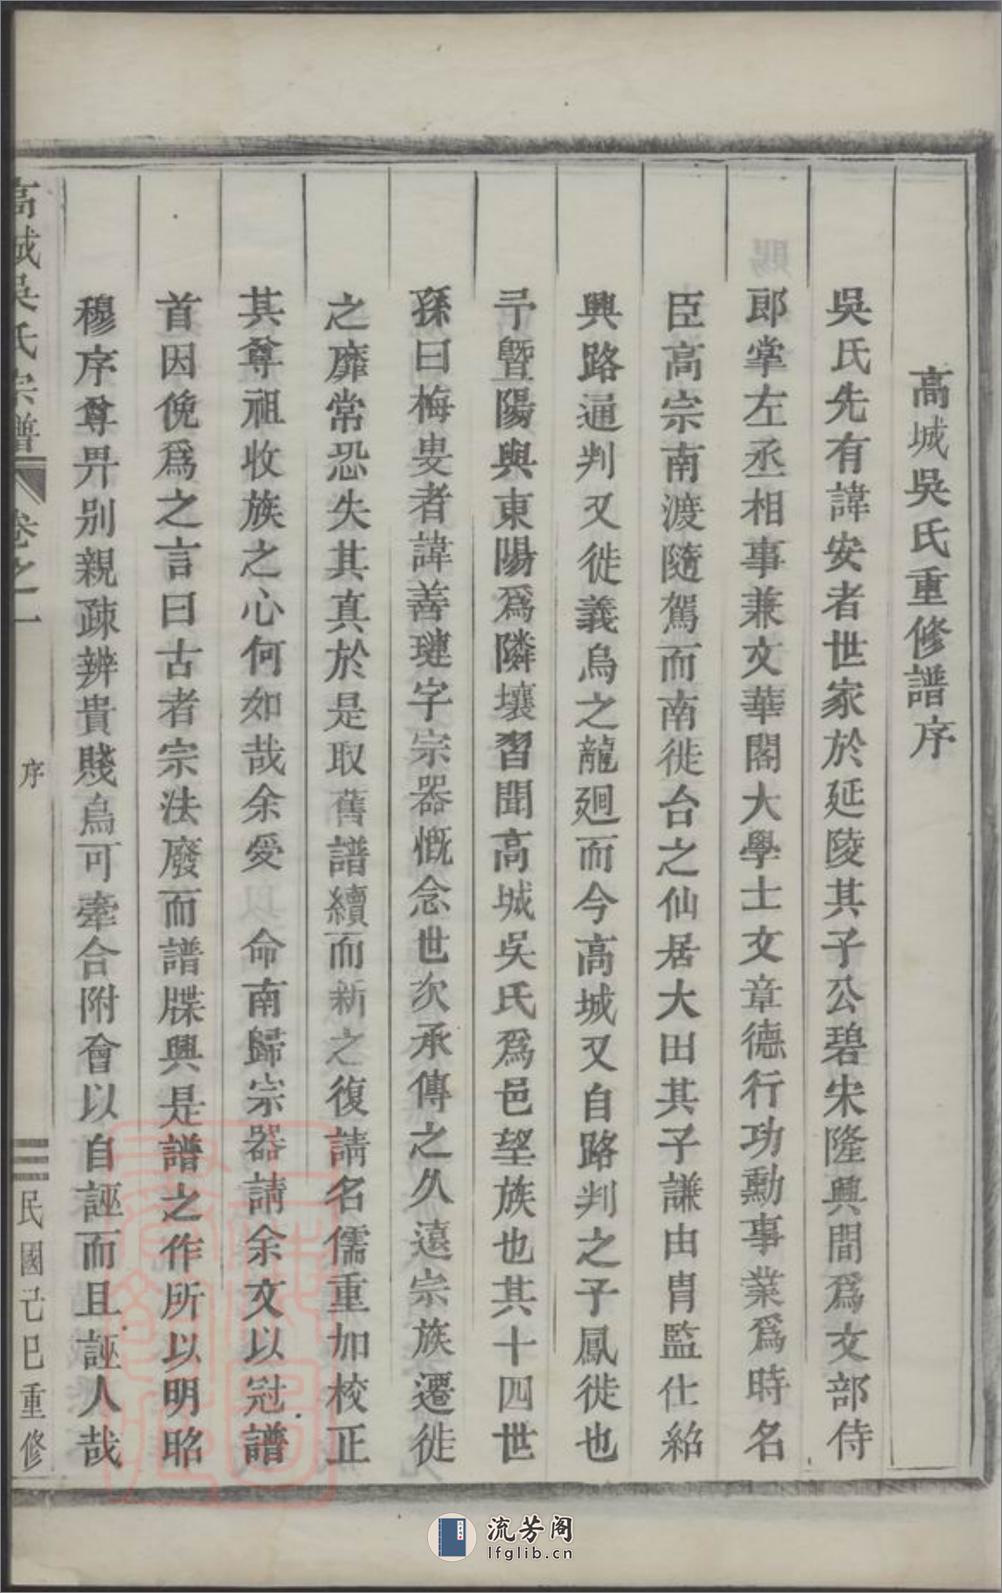 高城吳氏重修譜序
吳氏先有諱安者世家於延陵其子公碧宋隆興間爲文部侍
郎掌左丞相事兼文華閣大學士文章德行功勳事業爲時名
臣高宗南渡隨駕而南徙台之仙居大田其子謙由胄監仕紹
興路通判又徙義烏之龍廻而今高城又自路判之子鳳徙也
予暨陽與東陽爲隣壤習聞高城吳氏爲邑望族也其十四世
孫曰梅叟者諱善璉字宗器慨念世次承傳之久遠宗族遷徙
之靡常恐失其真於是取舊譜續而新之復請名儒重加校正
其尊祖收族之心何如哉余爰 命南歸宗器請余文以冠譜
首因俛爲之言曰古者宗法廢而譜牒興是譜之作所以明昭
穆序尊畀別親疎辨貴賤烏可牽合附會以自誣而且誣人哉
高城吳氏宗譜 卷之一 序 民國己巳重修
流芳阁
lfglib.cn